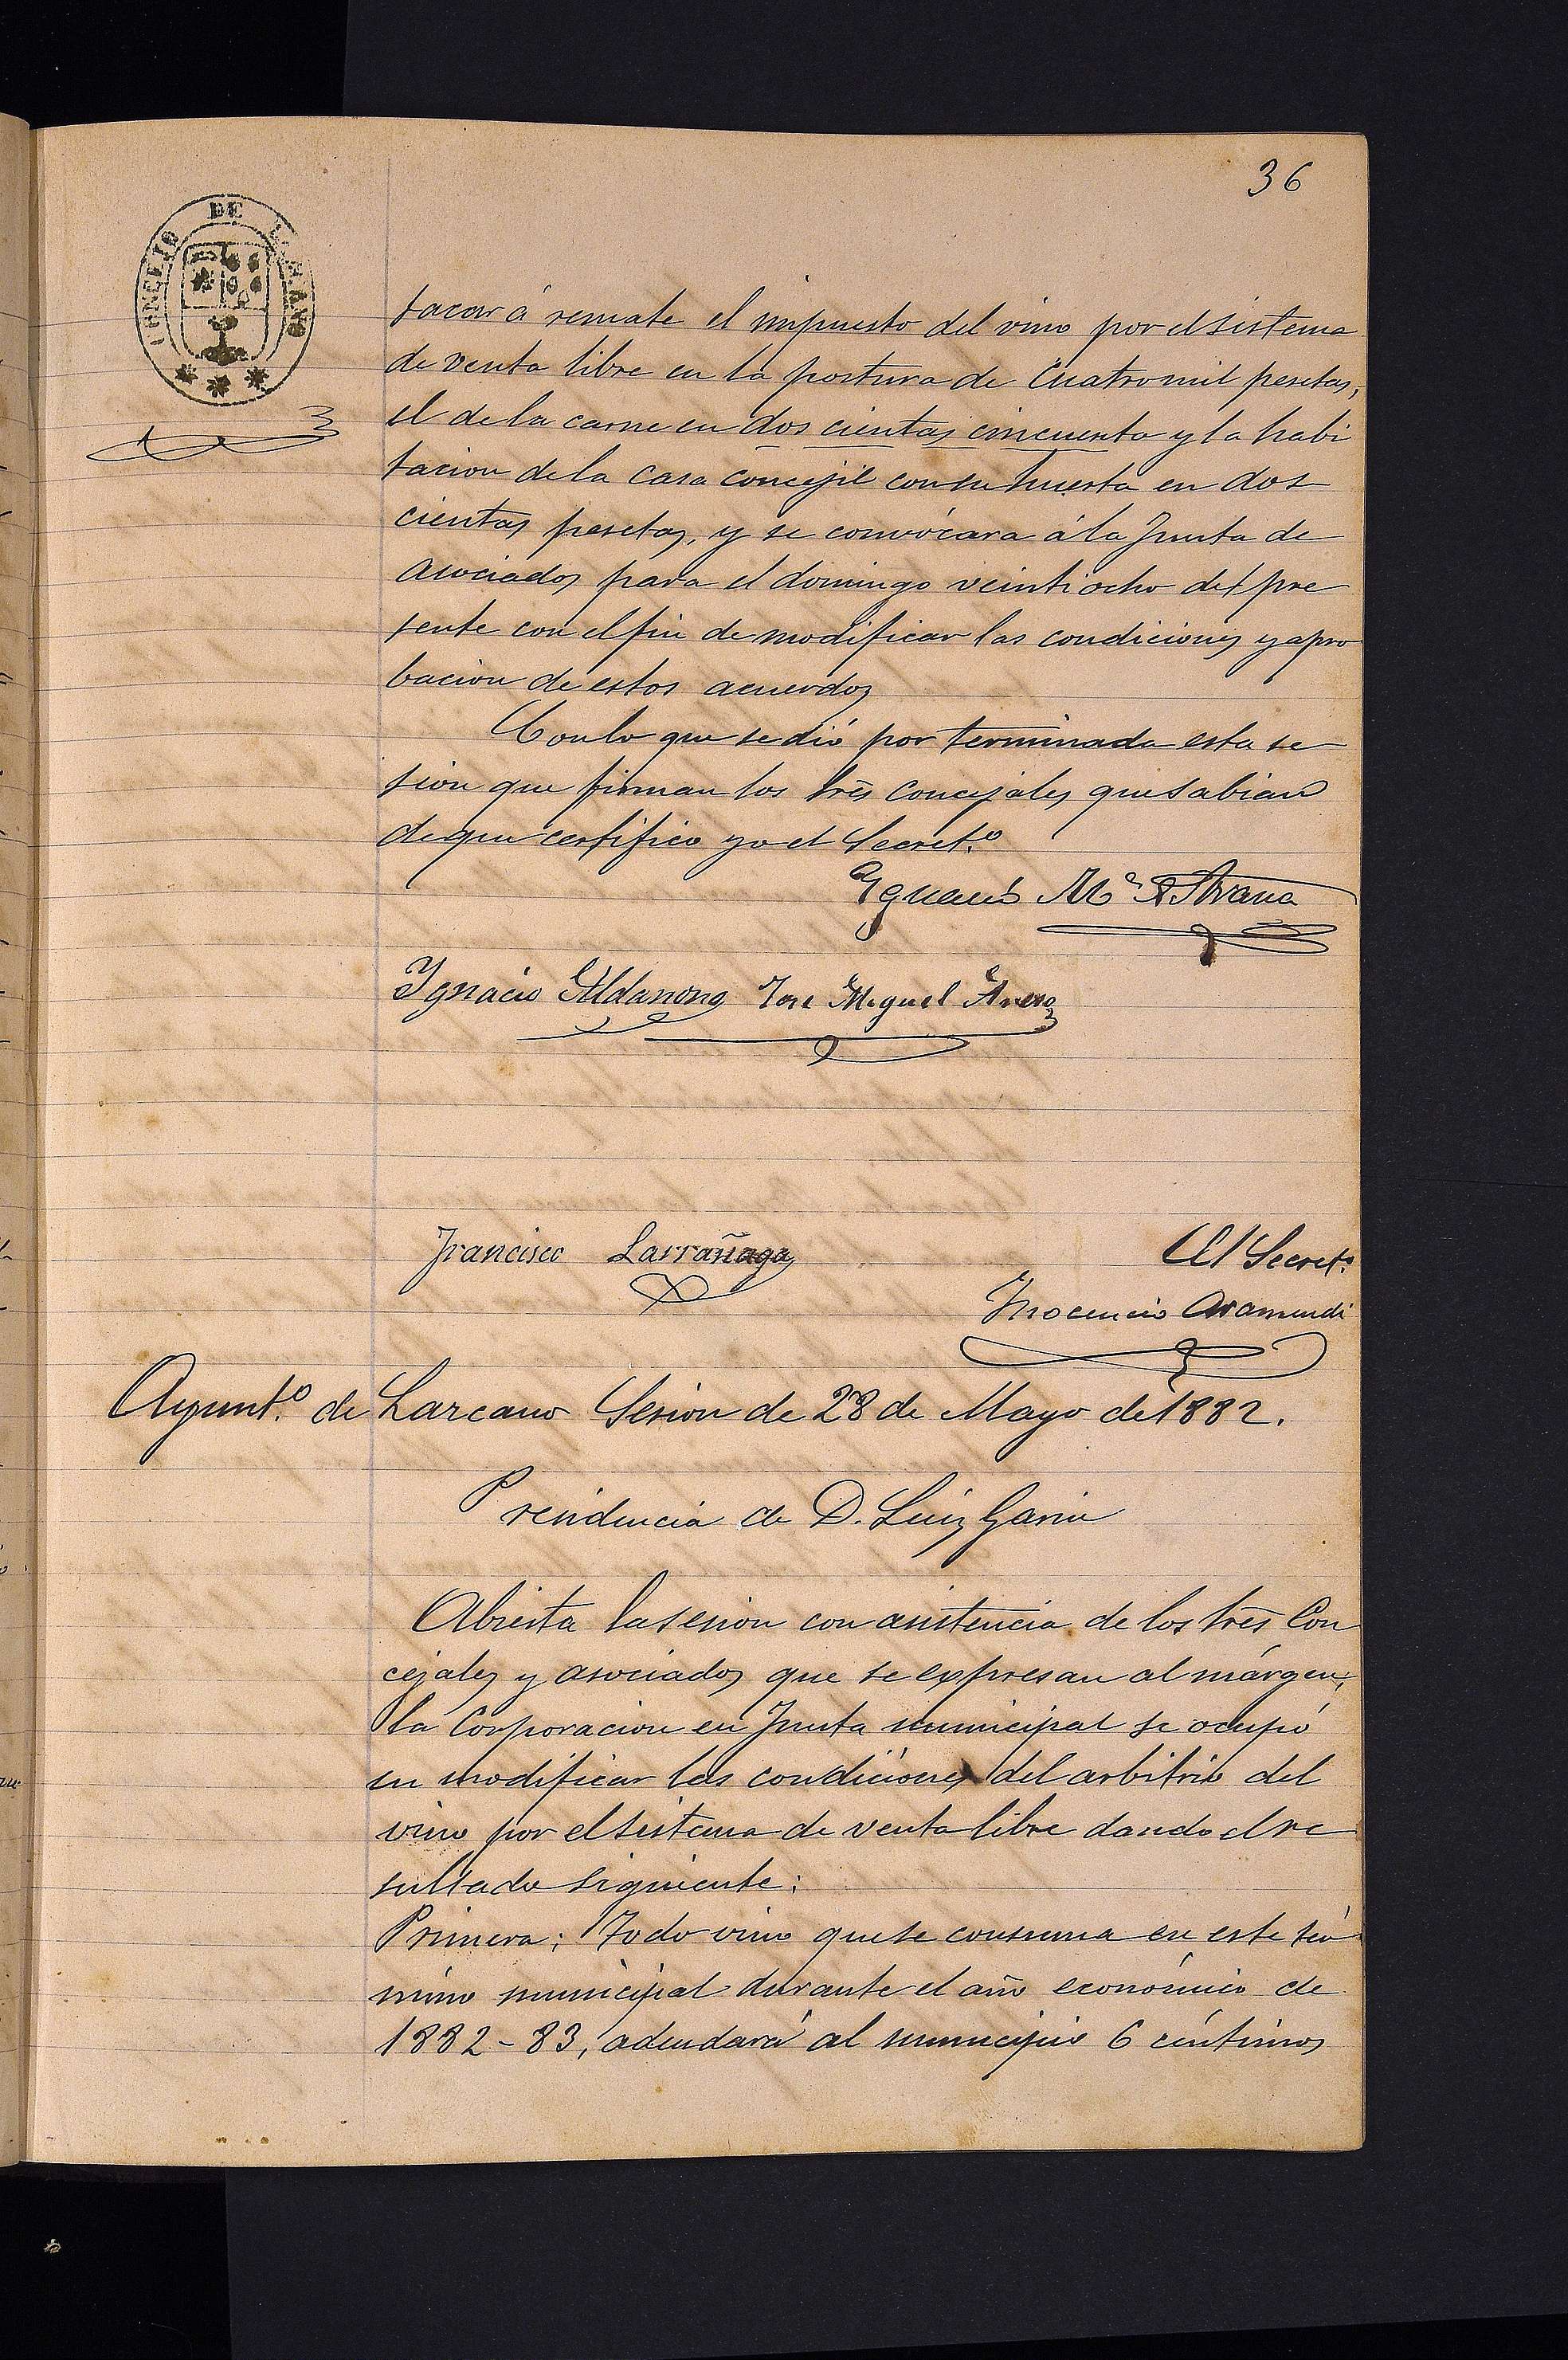 36
CONCEJO DE LAZCANO
sacar á remate el impuesto del vino por el sistema
de venta libre en la postura de Cuatro mil pesetas,
el de la carne en dos cientas cincuenta y la habi
tacion de la casa concejil con su huerta en dos
cientas pesetas, y se convócara á la Junta de
asociados para el domingo veintiocho del pre
sente con el fin de modificar las condiciones y apro
bacion de estos acuerdos
Con lo que se dió por terminada esta se
sion que firman los Srēs Concejales que sabian
de que certifico yo el Secret.º
Ygnacio Mª Arana
Ygnacio Aldanong Jose Miguel
Francisco Larrañaga
El Secret.º
Ynocencio Aramendi
Ayunt.º de Lazcano Sesion de 28 de Mayo de 1882.
Presidencia de D. Luiz Garin
Abierta la sesion con asistencia de los Srēs Con
cejales y asociados que se expresan al márgen,
la Corporacion en Junta municipal se ocupó
en modificar las condiciones del arbitrio del
vino por el sistema de venta libre dando el re
sultado siguiente:
Primera: Todo vino que se consuma en este tér
mino municipal durante el año económico de
1882-83, adeudará al municipio 6 céntimos